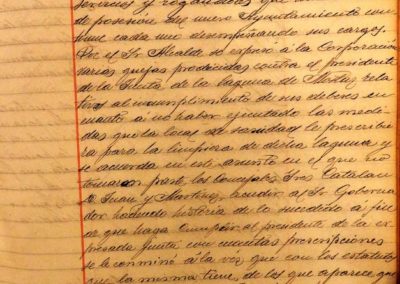 servicios y
de posesion del nuevo Ayuntamiento con
tinue cada uno desempeñando sus cargos.
Por el Sr. Alcalde se espuso á la Corporación
varias quejas producidas contra el presidente
de la Junta, de la laguna de rela
tivas al incumplimiento de sus deberes en
cuanto á no haber ejecutado las medi
das que la local de sanidad le prescribie
ra para la limpieza de dicha laguna y
se acuerda en este asunto en el que no
tomaron parte los Concejales Sres Catalan
D. Juan y Martinez, acudir al Sr. Goberna
dor haciendo historia de lo sucedido á fin
de que haga cumplir al presidente de la es
presada Junta con cuantas prescripciones
se le conminó á la vez que con los estatutos
que la misma tiene, de los que aparece que